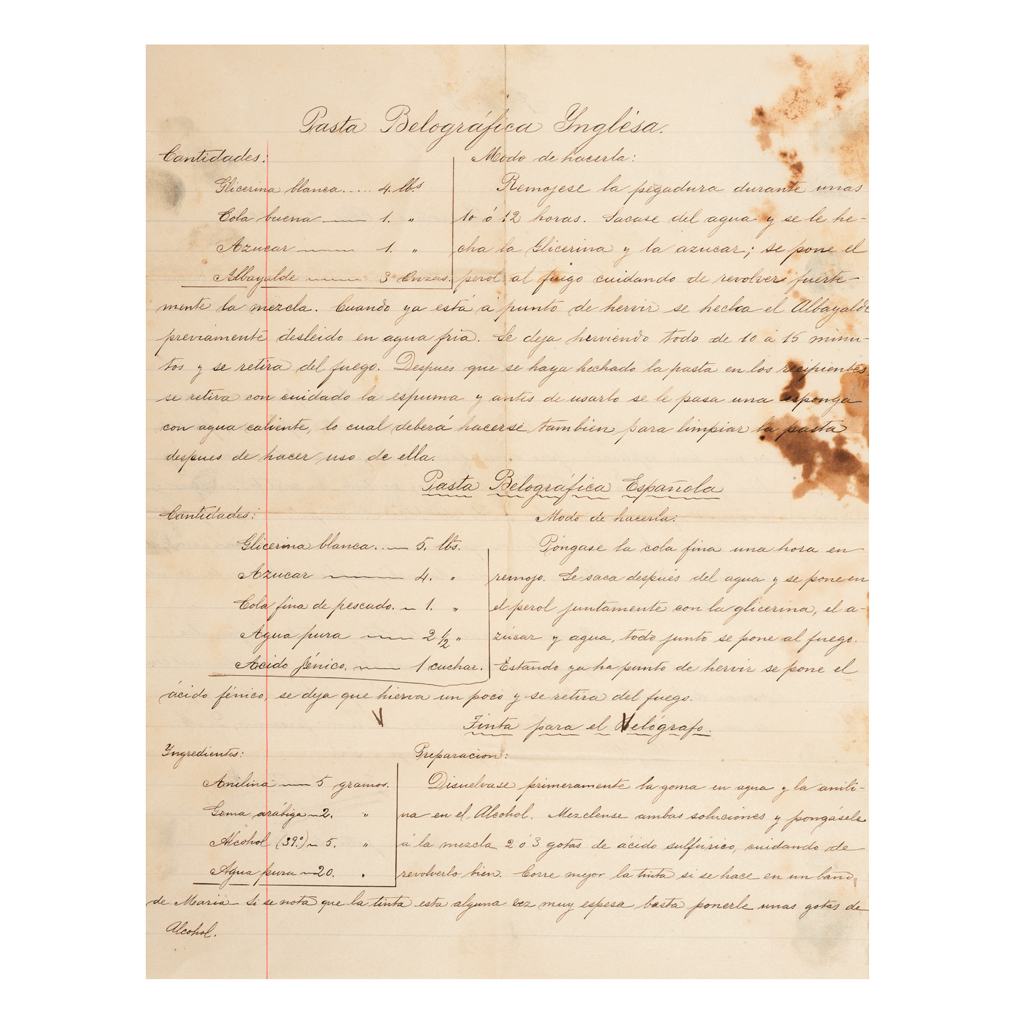 Pasta Belográfica Inglésa.
Cantidades: Modo de hacerla:
Glicerina blanca..... 4 lbs Remojese la pegadura durante unas
Cola buena —— 1. " 10 ó 12 horas. Sacase del agua y se le he-
Azucar —— 1. " cha la Glicerina y la azucar; se pone el
Albayalde —— 3 Onzas. perol al fuego cuidando de revolver fuerte-
mente la mezcla. Cuando ya está á punto de hervir se hecha el Albayalde
previamente desleido en agua fria. Se deja herviendo todo de 10 á 15 minu-
tos y se retira del fuego. Despues que se haya hechado la pasta en los recipientes
se retira con cuidado la espuma y antes de usarlo se le pasa una esponga
con agua caliente, lo cual deberá hacerse tambien para limpiar la pasta
despues de hacer uso de ella.
Pasta Belográfica Española
Cantidades: Modo de hacerla:
Glicerina blanca. — 5. lbs. Póngase la cola fina una hora en
Azucar —— 4. " remojo. Se saca despues del agua y se pone en
Cola fina de pescado. — 1. " el perol juntamente con la glicerina, el a-
Agua pura —— 2 1/2 " zúcar y agua, todo junto se pone al fuego.
Acido fénico. —— 1 cuchar. Estando ya ha punto de hervir se pone el
ácido fénico, se deja que hierva un poco y se retira del fuego.
V
Tinta para el Velógrafo.
Ingredientes: Preparacion:
Anilina — 5 gramos. Disuelvase primeramente la goma en agua y la anili-
Goma arábiga — 2. " na en el Alcohol. Mezclense ambas soluciones y pongásele
Alcohol (39.°) — 5. " á la mezcla 2 ó 3 gotas de ácido sulfúrico, cuidando de
Agua pura — 20. " revolverlo bien. Corre mejor la tinta si se hace en un
de Maria. Si se nota que la tinta esta alguna vez muy espesa basta ponerle unas gotas de
Alcohol.